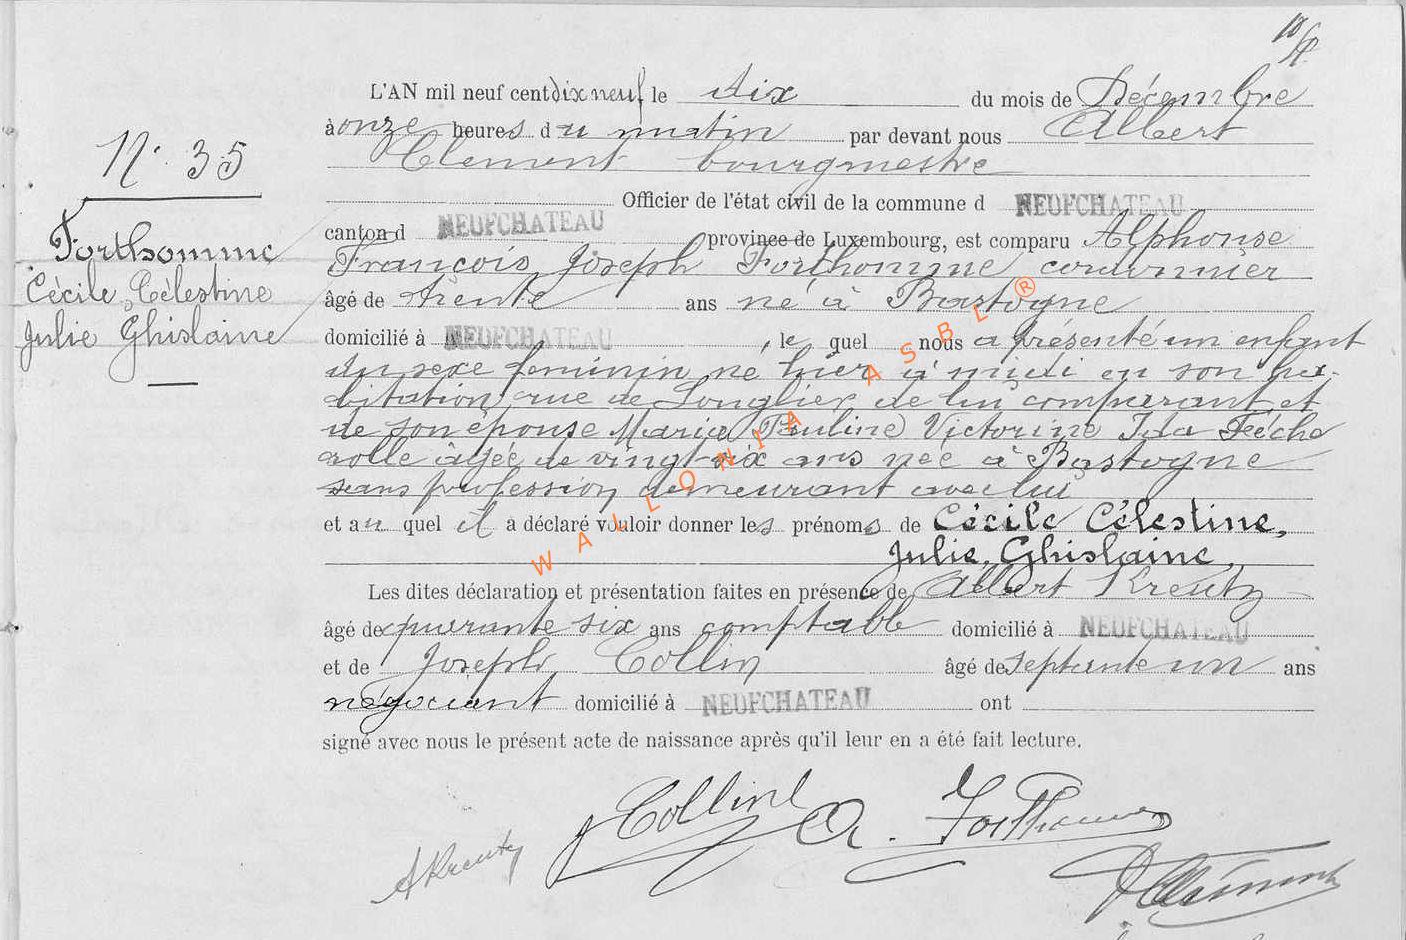 10/
L'AN mil neuf cent dix neuf le dix du mois de Décembre
à onze heures du matin par devant nous Albert
Clement bourgmestre
N° 35
Officier de l'état civil de la commune d NEUFCHATEAU
canton d NEUFCHATEAU province de Luxembourg, est comparu Alphonse
Forthomme
François Joseph Forthomme cordonnier
Cécile Célestine
âgé de trente ans né à Bastogne
Julie Ghislaine
domicilié à NEUFCHATEAU, le quel nous a présenté un enfant
du sexe feminin né hier à midi en son ha-
bitation, rue de Longlier de lui comparant et
de son épouse Maria Pauline Victorine Ida Féche
rolle âgée de vingt-six ans née à Bastogne
sans profession demeurant avec lui
et au quel il a déclaré vouloir donner les prénoms de Cécile Célestine,
Julie, Ghislaine,
Les dites déclaration et présentation faites en présence de Albert Kreutz
âgé de quarante six ans comptable domicilié à NEUFCHATEAU
et de Joseph Collin âgé de septante un ans
négociant domicilié à NEUFCHATEAU ont
signé avec nous le présent acte de naissance après qu'il leur en a été fait lecture.
J Collin A. Forthomme
A Kreutz
A Clément
WALLONIA ASBL ®